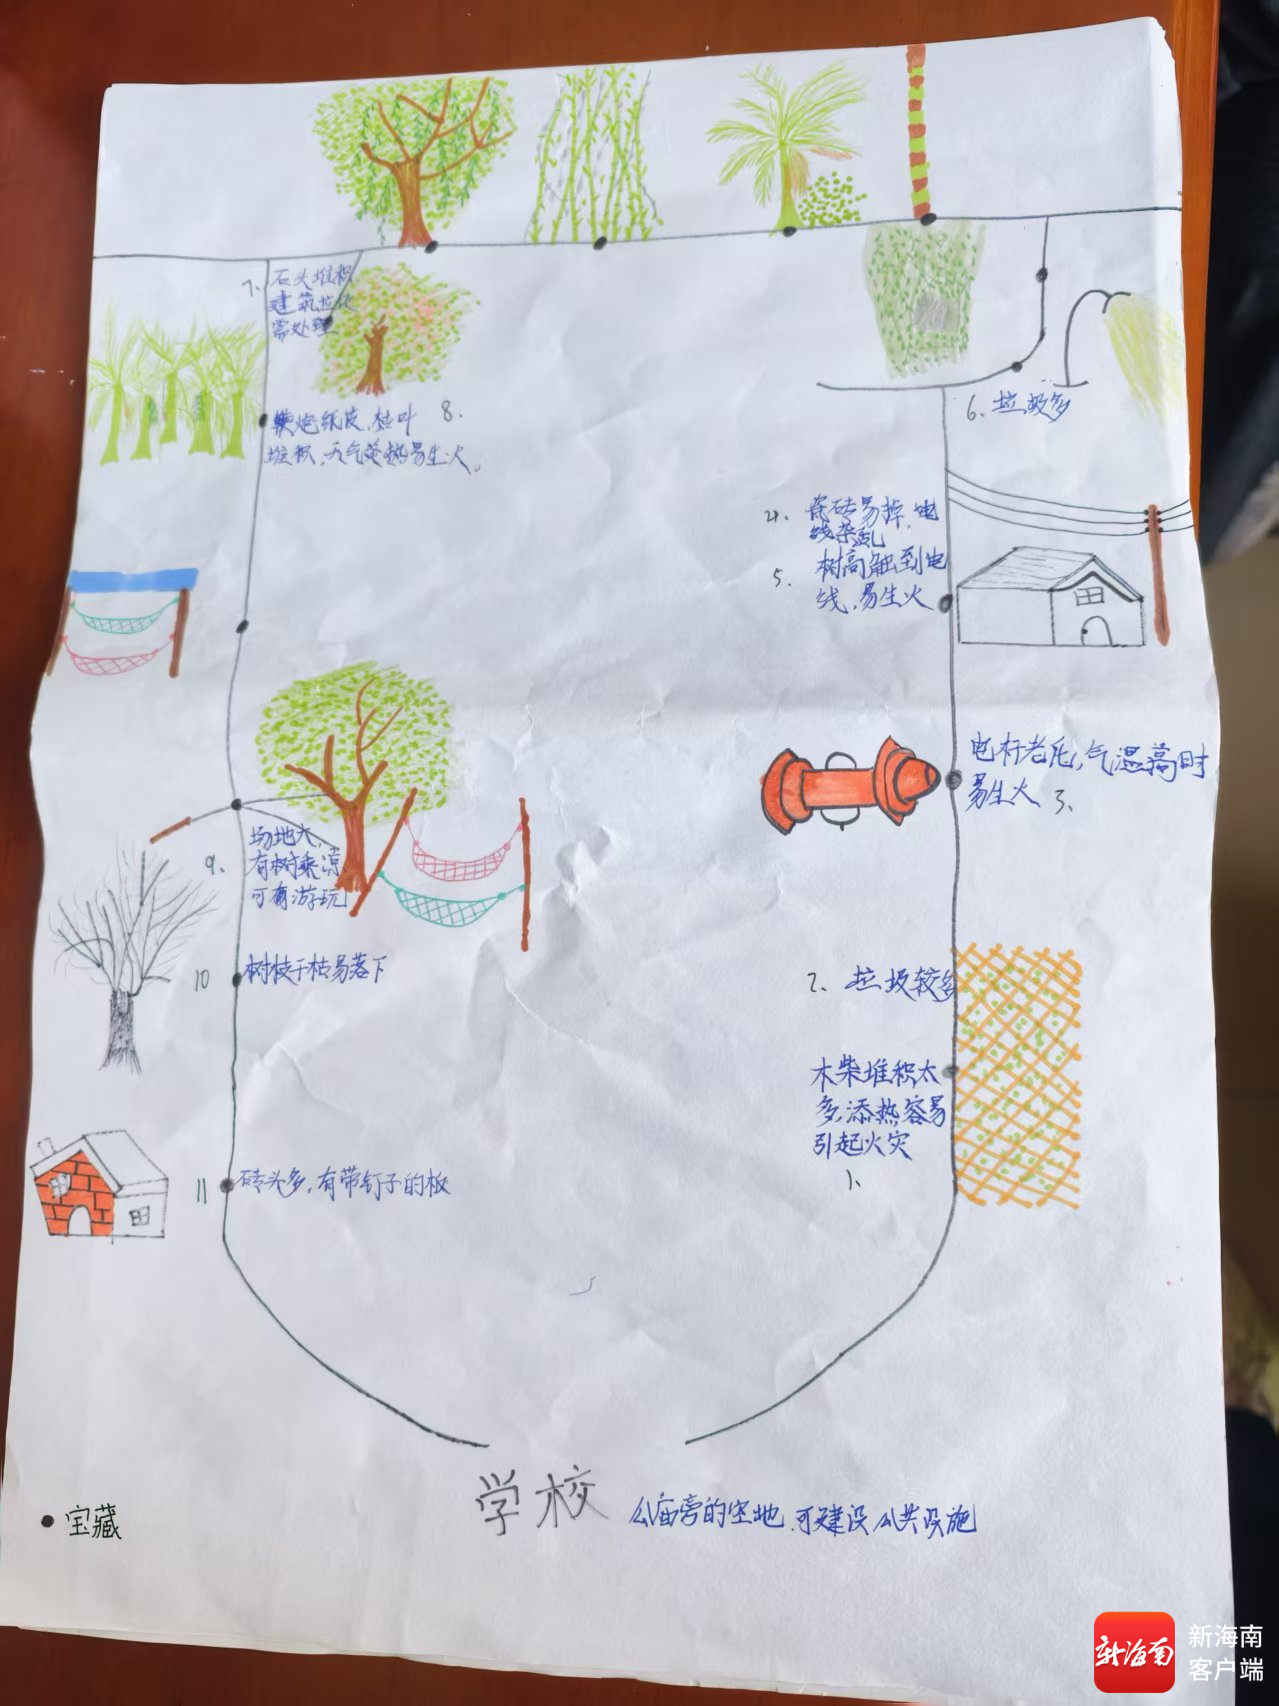 7、石头堆积
建筑垃圾
需处理
鞭炮纸皮,枯叶 8.
堆积,天气炎热易生火。
6、垃圾多
4、瓷砖易掉,电
线杂乱
5、树高触到电
线,易生火
电杆老化,气温高时
易生火 3、
场地大,
9、有树乘凉
可有游玩
10 树枝干枯易落下
2、垃圾较多
木柴堆积太
多,添热容易
引起火灾
1、
11 砖头多,有带钉子的板
学校
公庙旁的空地,可建设公共设施
宝藏
新海南
新海南
客户端